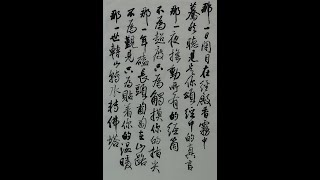 那一日閉目在經殿香霧中
驀然聽見是你頌經中的真言
那一夜搖動所有的經筒
不為超度只為觸摸你的指尖
那一年磕長頭匍匐在山路
不為覲見只為貼着你的溫暖
那一世轉山轉水轉佛塔